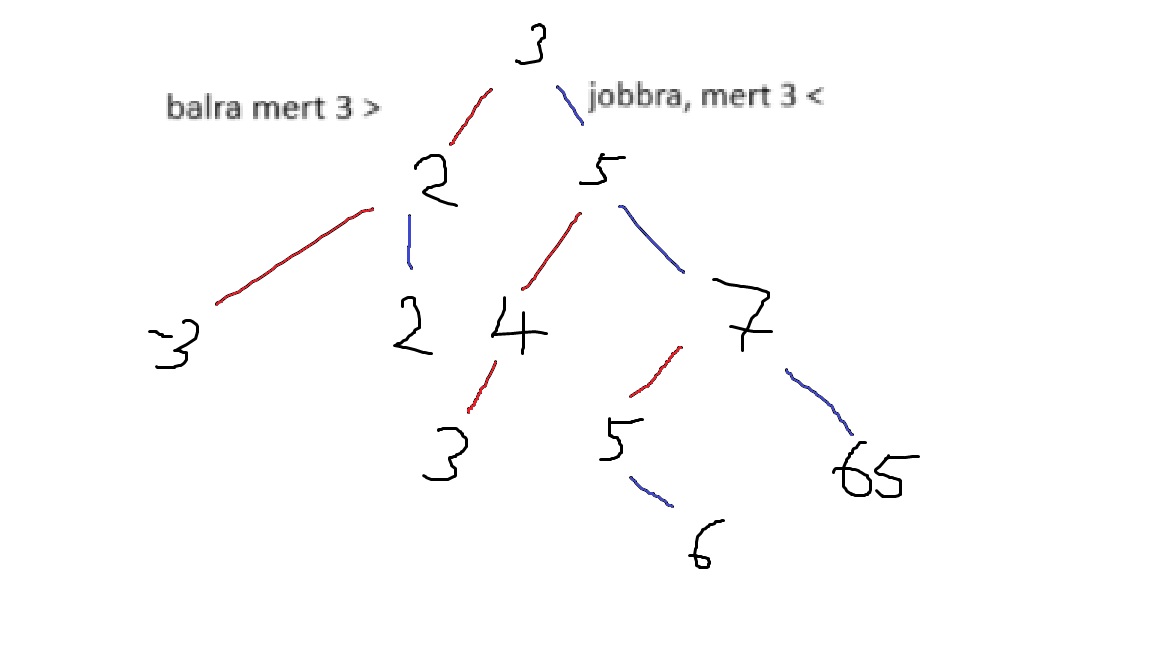 3
balra mert 3 >
jobbra, mert 3 <
2 5
-3 2 4 7
3 5 65
6